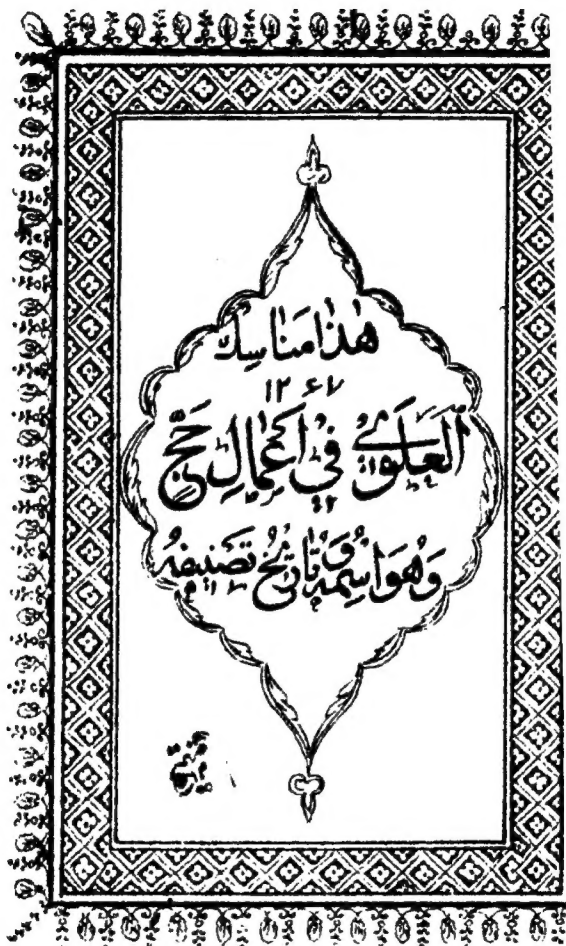 هٰذا مَناسِك
١٢۶٧
العَلَوي في اَعمالِ حَجّ
وَهُوَ اسِمُهُ وَ تاريخُ تَصنيفِهُ